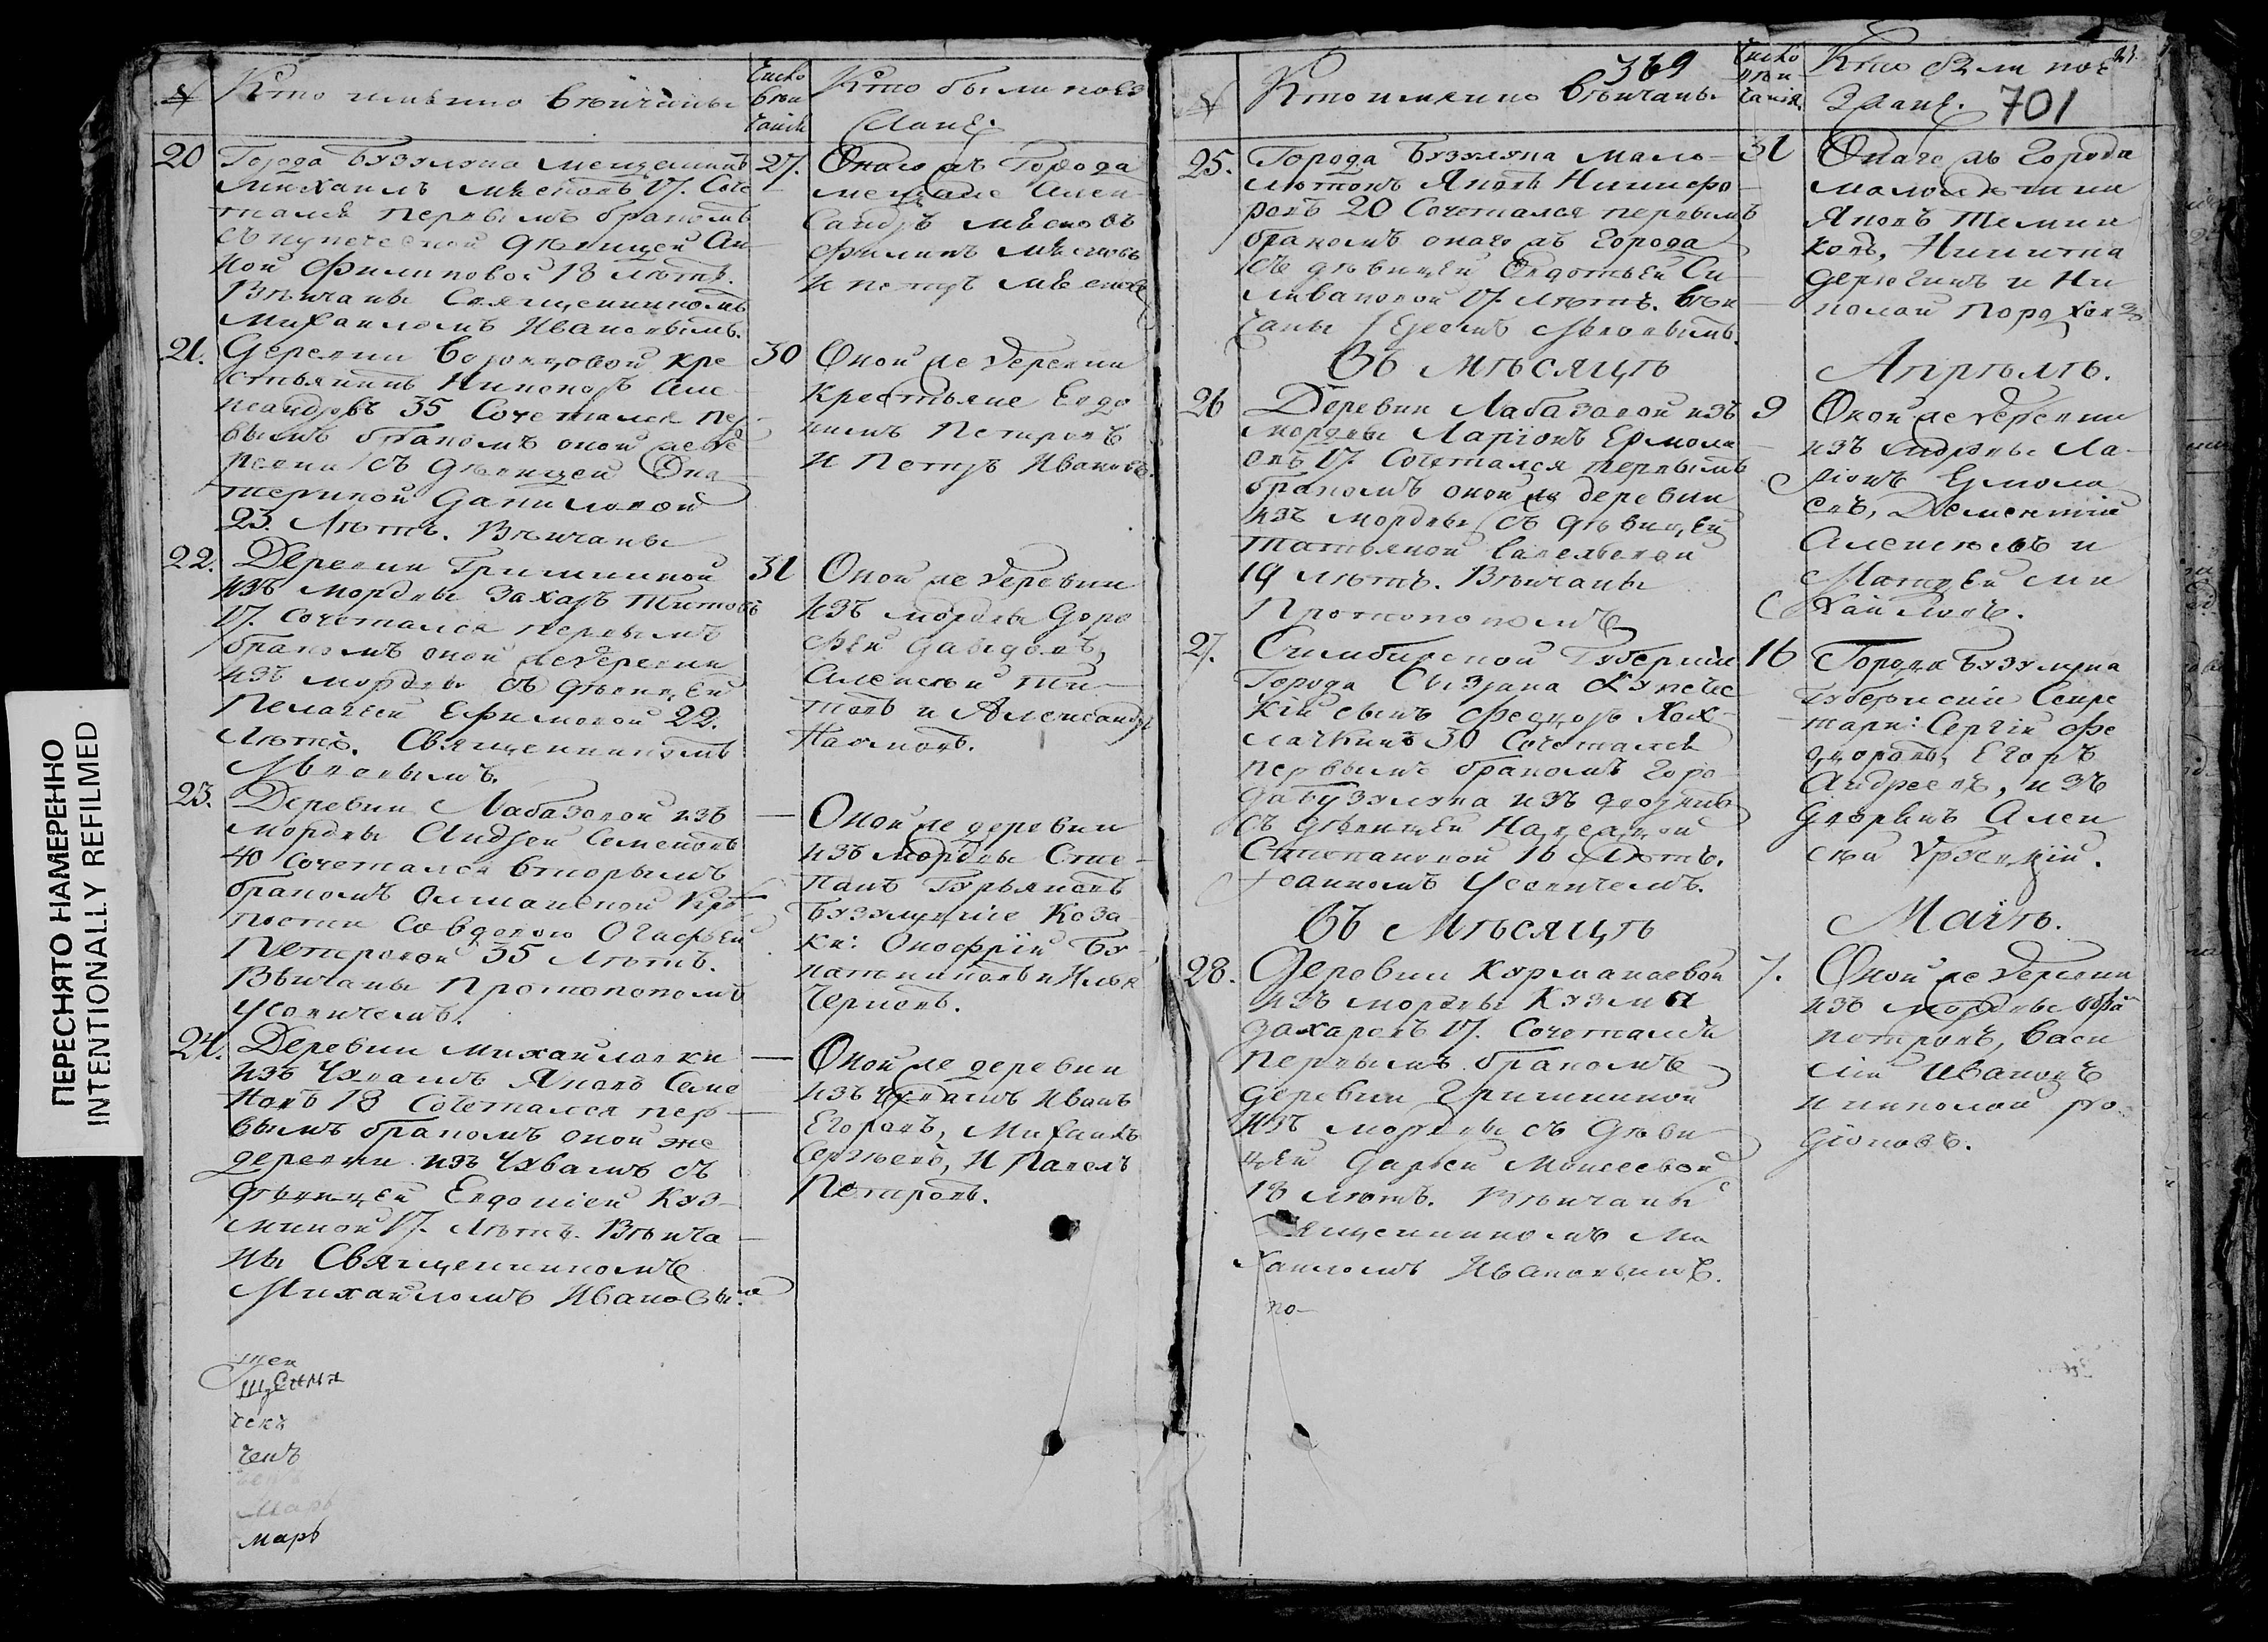 ПЕРЕСНЯТО НАМЕРЕННО
INTENTIONALLY REFILMED
№
Кто имянно венчаны
Число вен чанія
Кто были поез
жане.
20
Города Бузулука мещанинъ
Михаилъ 17. Соче
тался первымъ бракомъ
съ купеческой девицей Ан
ной Филиповой 18 летъ.
Венчаны Священникомъ
Михаиломъ Ивановымъ.
27.
Онаго жъ Города
мещане Алек
сандръ
Филипъ
и петръ
21.
Деревни Воронцовой кре
стьянинъ Никоноръ Але
ксандровъ 35 Сочетался пер
вымъ бракомъ оной же де
ревни съ девицей Ека
териной Даниловой
23. Летъ. Венчаны
30
Оной же деревни
Крестьяне Евдо
кимъ Петровъ
и Петръ Ивановъ.
22.
Деревни Гришкиной
изъ мордвы Захаръ Титовъ
17. Сочетался первымъ
бракомъ оной же деревни
изъ мордвы съ девицей
Пелагеей Ефимовой 22.
Летъ. Священникомъ
Львовымъ.
31
Оной же деревни
изъ мордвы Доро
фей Давыдовъ,
Алексей Ти
товъ и Александръ
Наумовъ.
23.
Деревни Лабазовой изъ
мордвы Андрей Семеновъ
40 Сочетался вторымъ
бракомъ Олшанской Кре
пости со вдовою Агафьей
Петровой 35 Летъ.
Венчаны Протопопомъ
—
Оной же деревни
изъ Мордвы Сте
панъ Гурьяновъ
Бузулуцкіе Коза
ки: Онофрій Бу
и Илья
Черновъ.
24.
Деревни Михайловки
изъ Чувашъ Яковъ Семе
новъ 18 Сочетался пер
вымъ бракомъ оной же
деревни изъ Чувашъ съ
девицей Евдокіей Куз
миной 17. Летъ. Венча
ны Священникомъ
Михайломъ Ивановымъ
—
Оной же деревни
изъ Чувашъ Иванъ
Егоровъ, Михаилъ
Сергеевъ, и Павелъ
Петровъ.
щенн
ченъ
марь
369
№
Кто имянно Венчаны
Число вен чанія.
Кто были пое
зжане. 701
25.
Города Бузулука мало
летокъ Яковъ Никифо
ровъ 20 Сочетался первымъ
бракомъ онаго жъ Города
съ девицей Евдотьей Си
ливановой 17. Летъ. Вен
чаны Іереемъ Львовымъ.
31
Онаго жъ Города
малолетки
Яковъ Темни
ковъ, Никита
Дерюгинъ и Ни
колай
Въ Месяце Апреле.
26
Деревни Лабазовой изъ
мордвы Ларіонъ Ермола
евъ 17. Сочетался первымъ
бракомъ оной же деревни
изъ мордвы съ девицей
Татьяной Савельевой
19 летъ. Венчаны
Протопопомъ
9
Оной же деревни
изъ мордвы Ла
ріонъ Ермола
евъ, Дементій
Алексеевъ и
Матвей Ми
хайловъ.
27.
Симбирской Губерніи
Города Сызрана Купечес
кій сынъ Федоръ Хох
лачкинъ 30 Сочетался
первымъ бракомъ Горо
да Бузулука изъ
съ девицей Надеждой
Степановой 16 Летъ.
Іоанномъ
16
Города Бузулука
Губернскій Секре
тарь: Сергій Фе
доровъ, Егоръ
Андреевъ, изъ
дворянъ Алек
сей
Въ Месяце Маіе.
28.
Деревни Курманаевой
изъ мордвы Кузма
Захаровъ 17. Сочетался
первымъ бракомъ
деревни Гришкиной
изъ мордвы съ деви
цей Дарьей Моисеевой
18 летъ. Венчаны С
вященникомъ Ми
хаиломъ Ивановымъ.
по—
7.
Оной же деревни
изъ мордвы
петровъ, Васи
лій Ивановъ
и николай Ро
діоновъ.